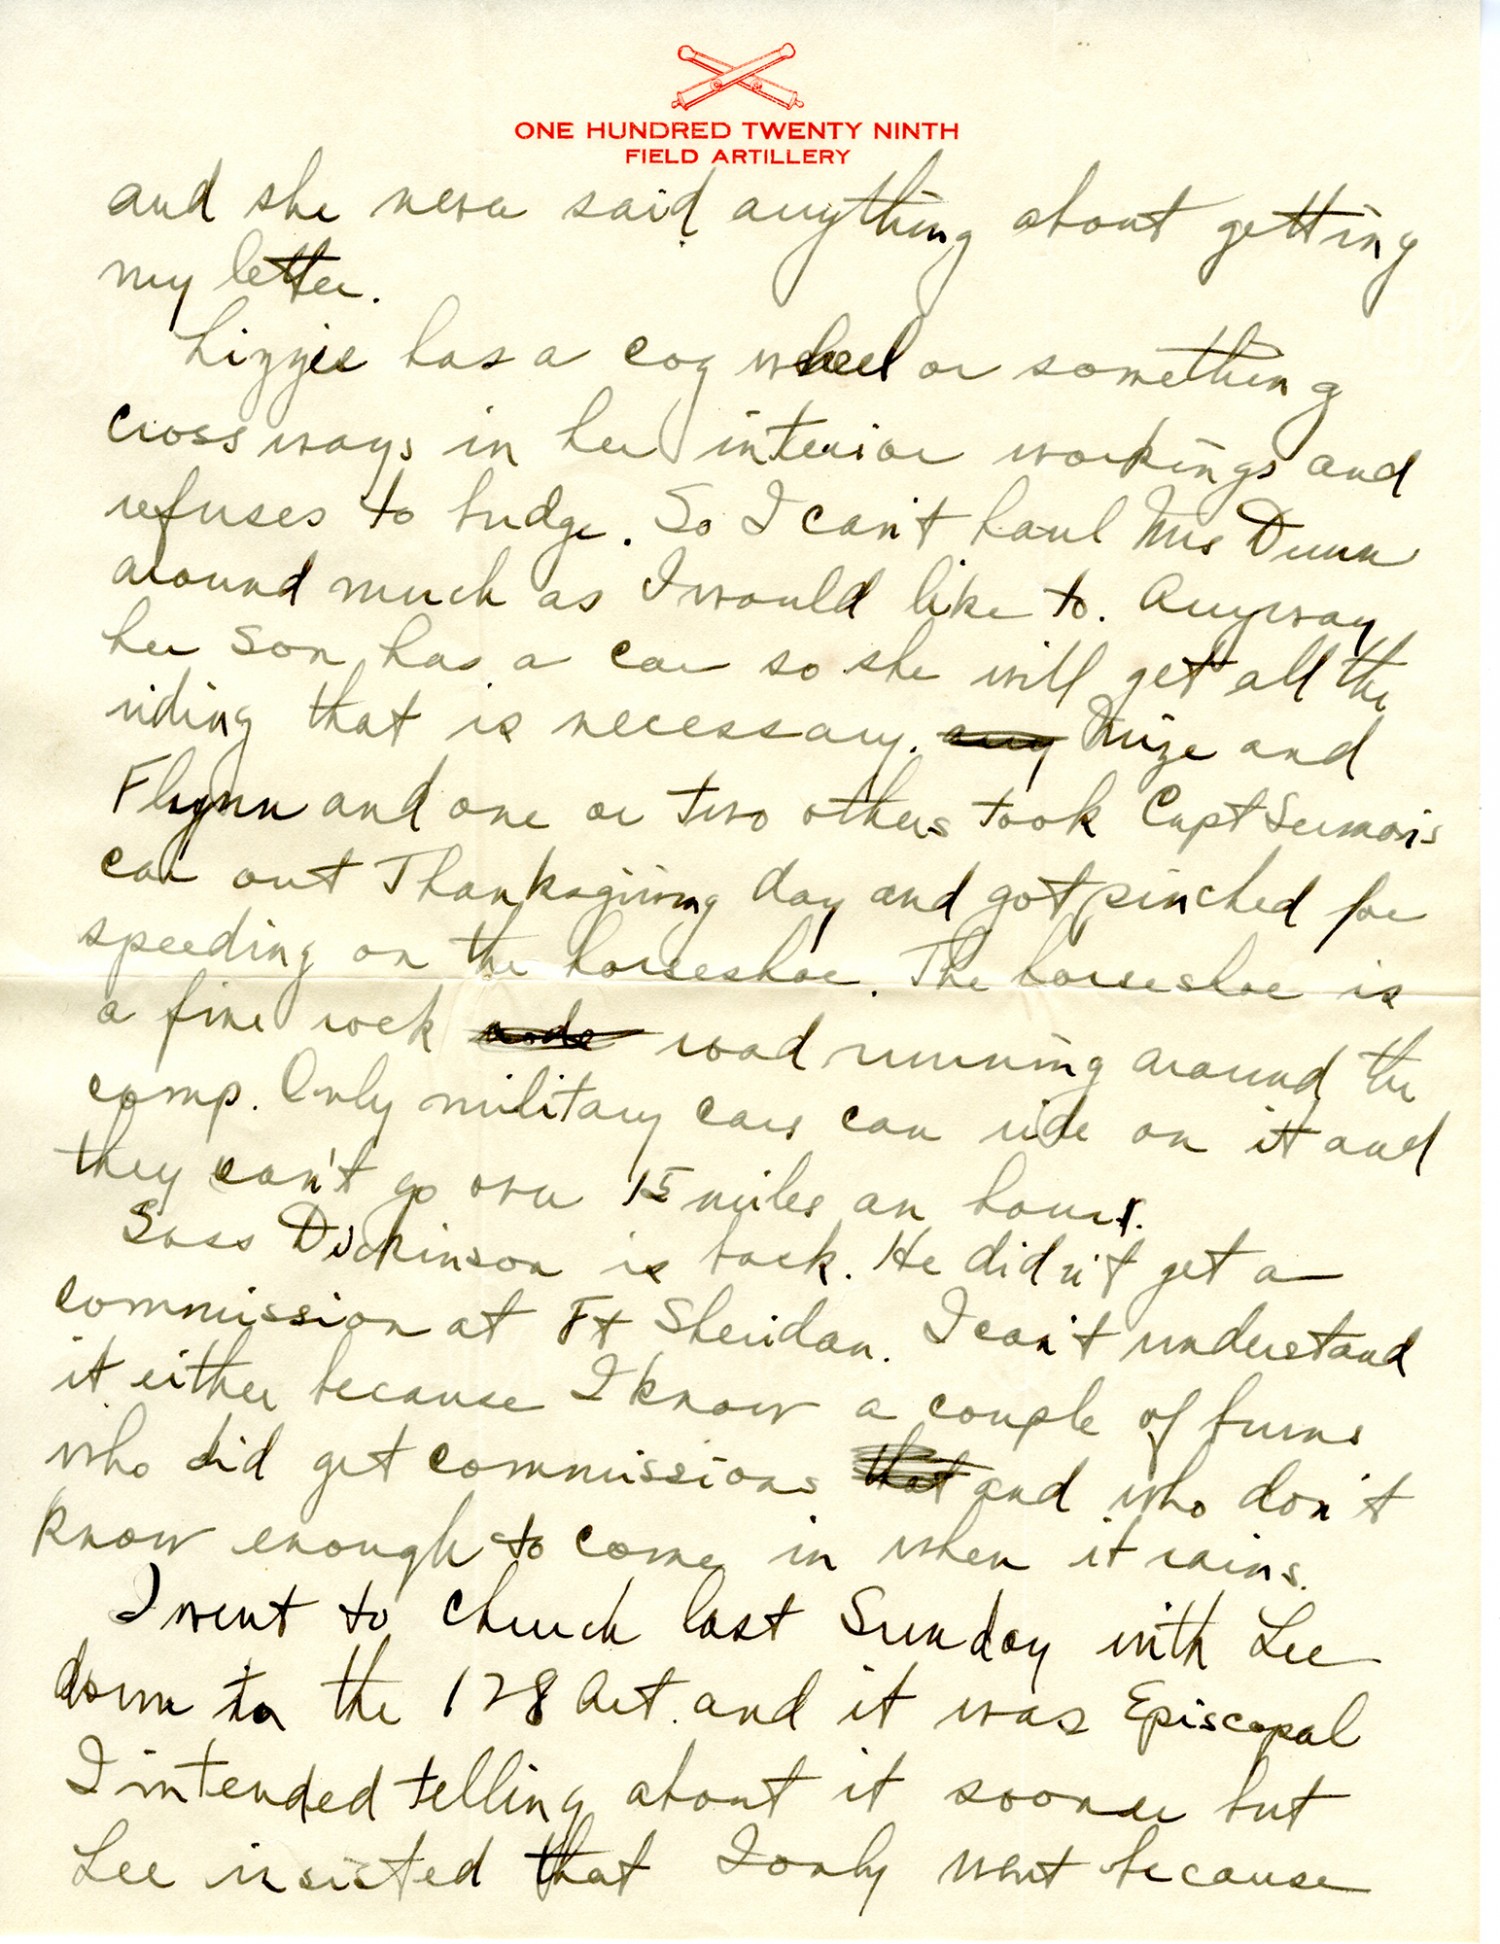 ONE HUNDRED TWENTY NINTH
FIELD ARTILLERY
and she never said anything about getting
my letter.
Lizzie has a cog wheel or something
cross ways in her interior workings and
refuses to budge. So I can't haul Mrs Dunn
around much as I would like to. Anyway
her son has a car so she will get all the
riding that is necessary. any Mize and
Flynn and one or two others took Capt Sermon's
car out Thanksgiving day and got pinched for
speeding on the horseshoe. The horseshoe is
a fine rock rode road running around the
camp. Only military cars can ride on it and
they can't go over 15 miles an hour.
Suss Dickinson is back. He didn't get a
commission at Ft Sheridan. I can't understand
it either because I know a couple of bums
who did get commissions that and who don't
know enough to come in when it rains.
I went to church last Sunday with Lee
down to the 128 Art. and it was Episcopal
I intended telling about it sooner but
Lee insisted that I only went because